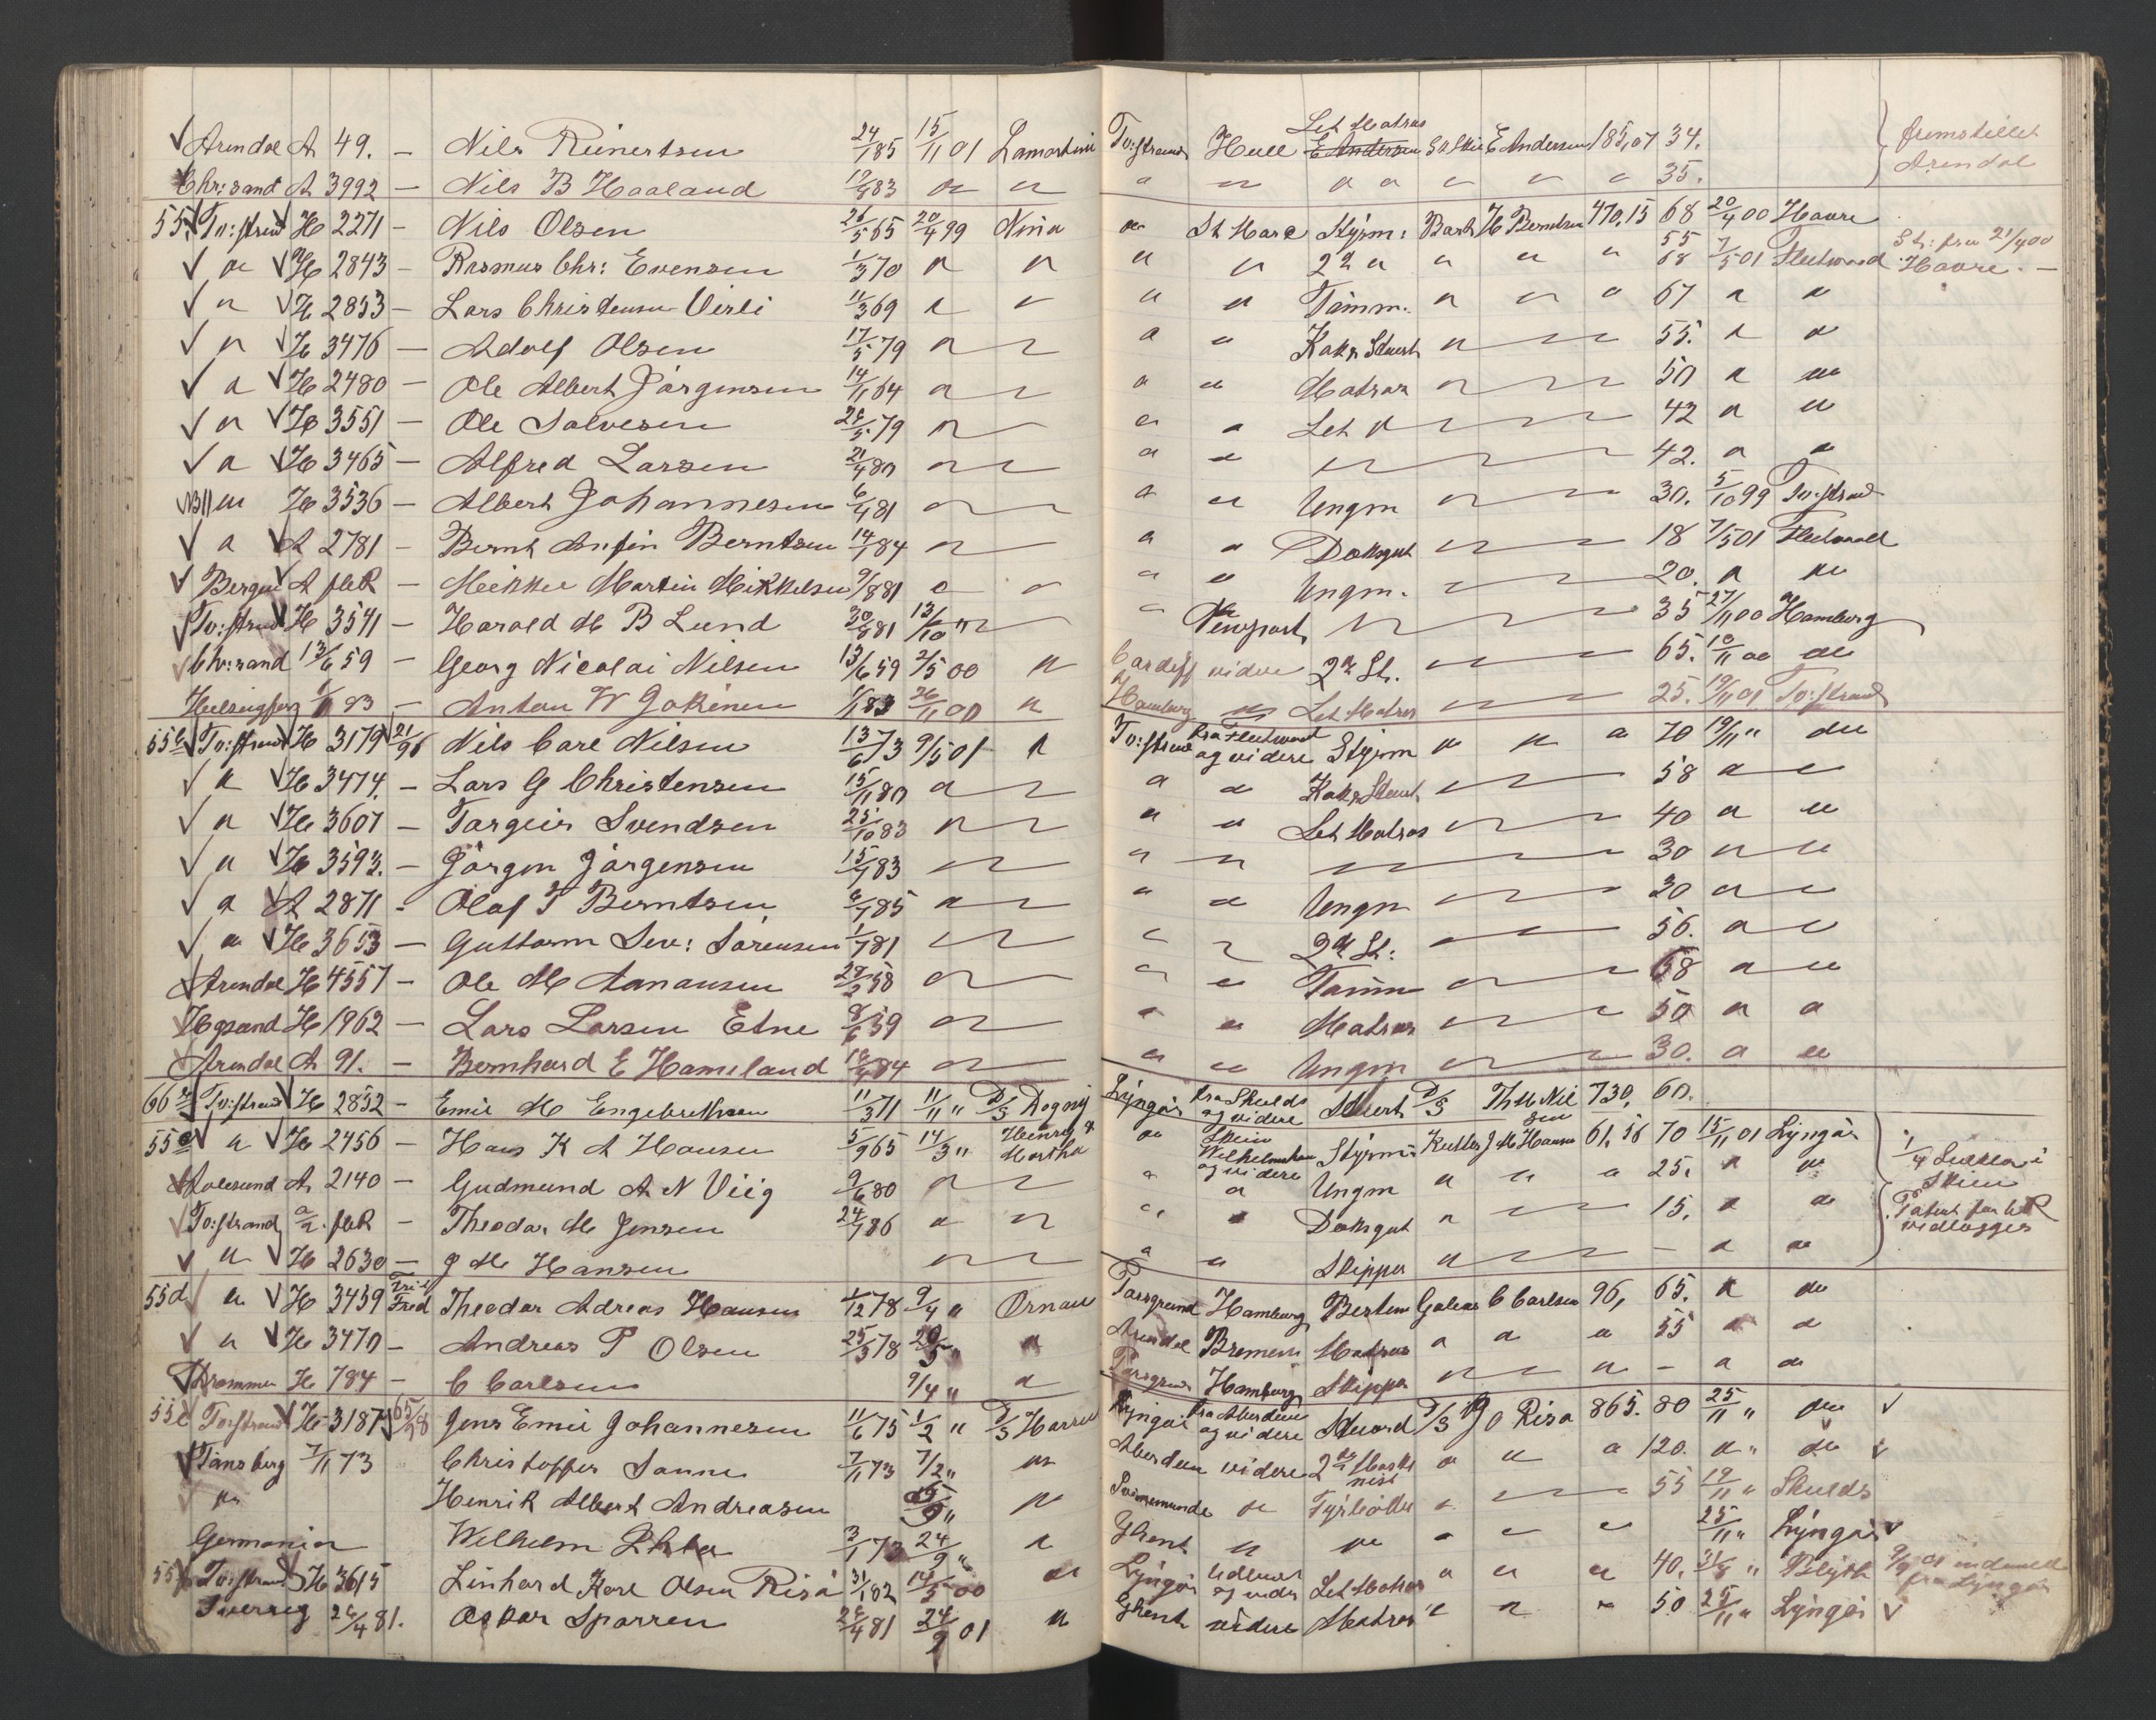 ✓ Arendal A 49. — Nils Reinertsen 24/1 85 15/11 01 Lamartine Tv:strand Hull Let Matros E Andersen 185,07 34. fremstillet
Chr:sand A 3992 — Nils B Haaland 83 " " " " " " " " " 35. Arendal
55. Tv:strand H 2271 — Nils Olsen 65 20/4 99 Nina " St Mare Styrm: Bark H Berntsen 470,15 68 20/4 00 Havre
✓ " ✓ H 2843 — Rasmus Chr: Evensen 1/3 70 " " " " 2d " " " " 55 68 7/5 01 Fleetwood St: fra 21/4 00 Havre. —
✓ " ✓ H 2853 — Lars Christensen Virli 11/3 69 " " " " Tømm. " " " 67 " "
✓ " ✓ H 3476 — Adolf Olsen 17/5 79 " " " " Kok & Stuert " " 55. " "
✓ " ✓ H 2480 — Ole Albert Jørgensen 14/11 64 " " " " Matros " " 50 " "
✓ " ✓ H 3551 — Ole Salvesen 26/5 79 " " " Let " " 42 " "
✓ " ✓ H 3465 — Alfred Larsen 21/4 80 " " " " " " 42. " "
" H 3536 — Albert Johannesen 6/4 81 " " " Ungm " " 30. 5/10 99 Tv:strand
✓ " ✓ A 2781 — Bernt Anfin Berntsen 14/1 84 " " " Dæksgut " " 18 7/5 01 Fleetwood
✓ Bergen ✓ A — Mikkel Martin Mikkelsen 9/8 81 " " " " Ungm. " " 20. " "
✓ Tv:strand H 3541 — Harald M B Lund 30/8 81 13/10 " " " Newport " " 35 27/11 00 Hamburg
✓ Chr:sand 13/6 59 — Georg Nicolai Nilsen 13/6 59 2/5 00 " Cardiff videre 2d St. " 65. 10/11 00 "
Helsingfors 1/11 83 — Anton W Jokinen 1/1 83 26/11 00 " Hamburg " Let Matros " 25. 19/11 01 Tv:strand
55b Tv:strand ✓ H 3179 ✓ 21/96 Nils Carl Nilsen 13/6 73 9/5 01 " Tv:strand fra Fleetwood og videre Styrm " " " 70 19/11 " "
✓ " ✓ H 3474. — Lars G Christensen 15/11 80 " " " " Kok & Stuert " " 58 " "
✓ " ✓ H 3607 — Targeir Svendsen 25/10 83 " " " " Let Matros " " 40 " "
✓ " ✓ H 3593. — Jørgen Jørgensen 15/7 83 " " " " " 30 " "
✓ " A 2871 - Olaf T Berntsen 6/1 85 " " " " Ungm " " 30 " "
✓ " ✓ H 3653 — Guttorm Sev: Sørensen 1/7 81 " " " " 2d St: " 56. " "
✓ Arendal H 4557 — Ole M Aanansen 28/2 58 " " " Tømm " 58 " "
✓ Hgsund H 1962 — Lars Larsen Etne 8/6 59 " " " Matros " " 50 " "
✓ Arendal A 91. — Bernhard E Hameland 84 " " " Ungm " " 30. " "
66 Tv:strand ✓ H 2852 — Emil M Engebrethsen 11/3 71 11/11 " D/S Dogny Lyngør fra Skulds og videre Stuert D/S Th M Nilsen 730, 60.
55c ✓ " ✓ H 2456 — Hans K A Hansen 5/9 65 14/3 " Henry & Martha " Skien Wilhelmshaven og videre Styrm: Kutter J M Hansen 61,56 70 15/11 01 Lyngør 1/4 Skien
✓ Aalesund A 2140 — Gudmund A N Viig 9/6 80 " " " " Ungm " " " 25. " "
✓ Tv:strand — Theodor M Jensen 24/1 86 " " " " Dæksgut " " 15. " "
✓ " ✓ H 2630 — J M Hansen " " " Skipper " " — " "
55d ✓ " ✓ H 3459 Theodor Adreas Hansen 1/12 78 9/4 " Ørnen Porsgrund Hamburg Bestm Galeas C Carlsen 96, 65. " "
✓ " ✓ H 3470 — Andreas P Olsen 25/3 78 20/5 " " Arendal Bremen Matros " " " 55 " "
✓ Drammen H 784 — C Carlsen 9/4 " " Porsgrund Hamburg Skipper " " " — " "
55e Tv:strand ✓ H 3187 Jens Emil Johannesen 11/6 75 1/2 " D/S Lyngør fra Aberdeen og videre Stuord D/S J O Risø 865. 80 25/11 " " ✓
✓ Tønsberg 7/11 73 Christoffer Sanne 7/11 73 7/2 " " Aberdeen videre 2den Maskinist " " " 120. " " " ✓
✓ " Henrik Albert Andreasen " " Svinemunde " Fyrbøder " " 55 19/11 " Skulds
Germania Wilhelm 3/1 73 24/9 " " Ghent " " " " " 25/11 " Lyngør ✓
55 Tv:strand H 3615 Linhard Karl Olsen Risø 31/1 82 14/5 00 " Lyngør Let Matros " " " 40. 31/8 " Blyth fra Lyngør
Sverrig 26/4 81. Oskar Sparren 26/4 81 24/9 01 " Ghent videre Matros " " " 50 25/11 " Lyngør ✓